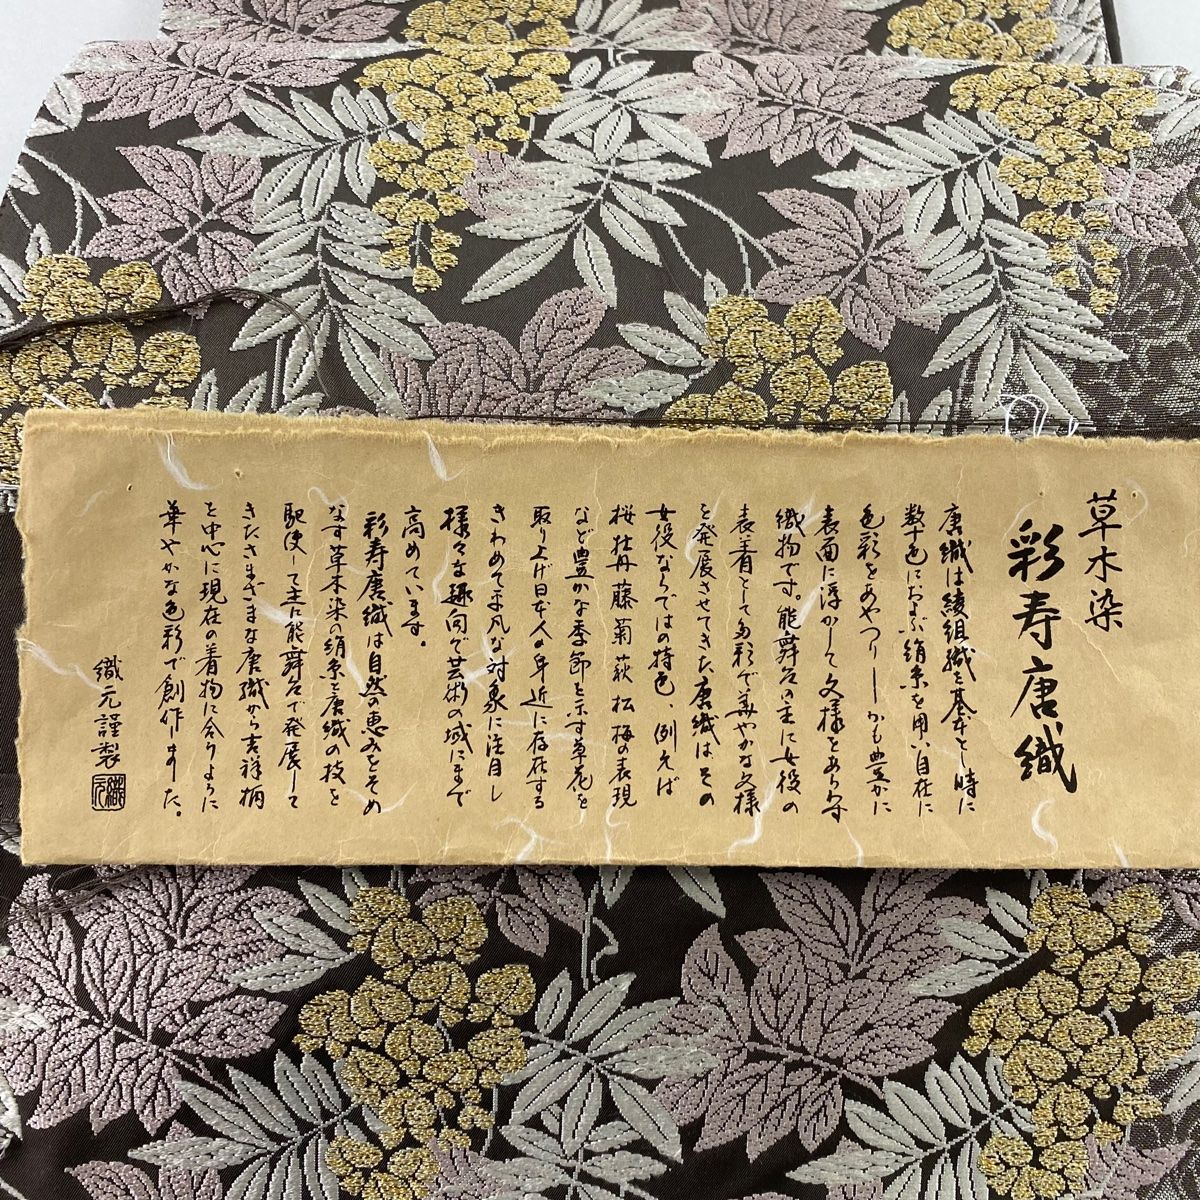 草木染
彩寿唐織
唐織は綾組織を基本とし時に
数十色におよぶ絹糸を用い自在に
色彩をあやつりしかも豊かに
表面に浮かして文様をあらわす
織物です。能舞台の主に女役の
表着として多彩で華やかな文様
を発展させてきた唐織はその
女役ならではの特色、例えば
桜牡丹藤菊萩松梅の表現
など豊かな季節を示す草花を
取り上げ日本人の身近に存在する
きわめて平凡な対象に注目し
様々な趣向で芸術の域にまで
高めています。
彩寿唐織は自然の恵みをそめ
なす草木染の絹糸と唐織の技を
駆使して主に能舞台で発展して
きたさまざまな唐織から吉祥柄
を中心に現在の着物に合うように
華やかな色彩で創作しました。
織元謹製
織元